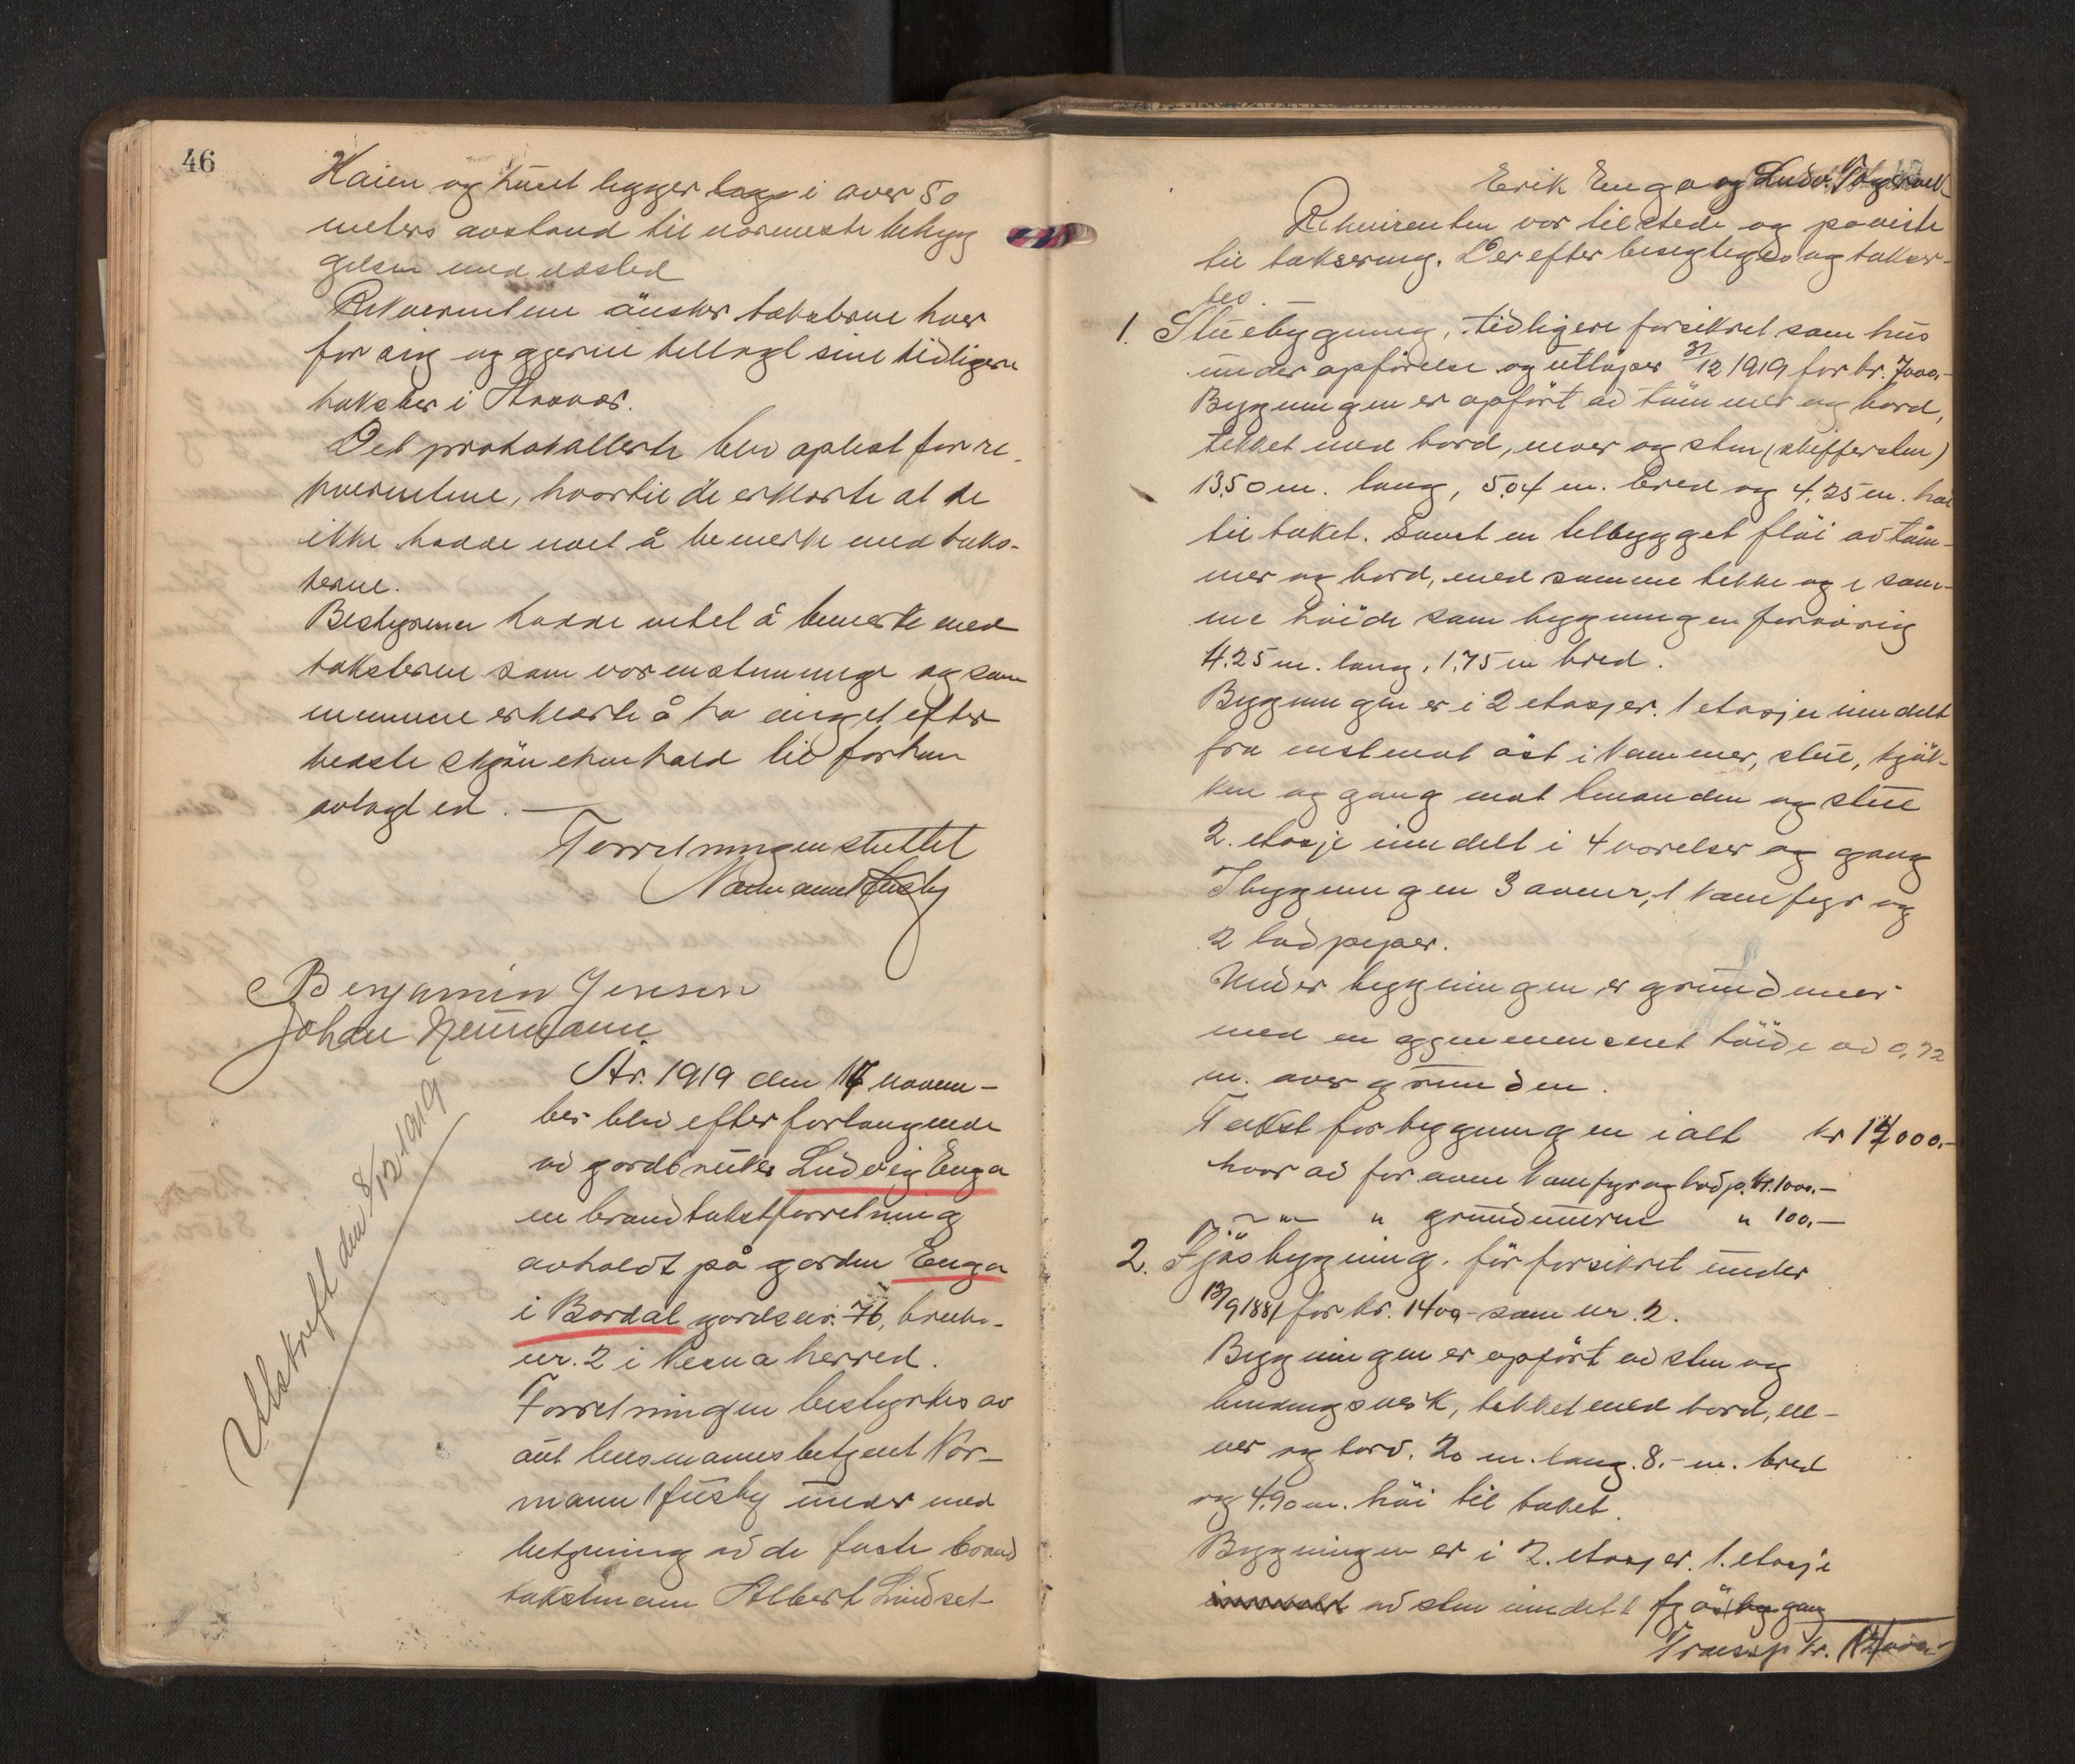 46
Kaien og huset ligger i over 50
meters avstand til nærmeste bebyg
gelse med ildsted
Rekvirentene ønsker taksterne hver
for sig og gjerne tillagt sine tidligere
takster i
Det protokollerte blev oplest for re-
kvirentene, hvortil de erklærte at de
ikke hadde noet å bemerke med taks-
terne.
Bestyreren hadde intet å bemerke med
taksterne som var enstemmige og som
mennene erklærte å ha avgit efter
bedste skjøn i henhold til forhen
avlagt ed. —
Forretningen sluttet
Normann Husby
Benjamin Jensen
Johan Neumann.
År. 1919 den 17 novem-
ber blev efter forlangende
av gårdbruker Ludvig Enga
en brandtakstforretning
avholdt på garden Enga
i Bordal gardsnr. 76, bruks-
nr. 2 i herred.
Forretningen bestyrkes av
aut lensmannsbetjent Nor-
mann Husby under med
betjening av de faste brand
takstmenn Albert Lindset
Utskreft den 8/12 1919
Erik Enga og Ludv.
Rekvirenten var tilstede og påviste
til taksering. Derefter besigtiges og takser-
tes.
1. Stuebygning, tidligere forsikret som hus
under opførelse og utløper 31/12 1919 for kr. 7000,-
Bygningen er opført av tømmer og bord,
tekket med bord, never og sten (skiffersten)
13,50 m. lang, 5,04 m. bred og 4,25 m. høi
til taket. Samt en tilbygget fløi av tøm-
mer og bord, med samme tekke og i sam-
me høide som bygningen forøvrig
4.25 m. lang, 1,75 m bred.
Bygningen er i 2 etasjer. 1 etasje inndelt
fra vest mot øst i kammer, stue, kjøk-
ken og gang mot og stue
2. etasje inndelt i 4 værelser og gang
I bygningen 3 ovner, 1 komfyr og
2 lodpiper.
Under bygningen er grundmur
med en gjennemsnet høide av 0,72
m. over grunden.
Takst for bygningen ialt kr 12000.-
hvor av for ovne komfyr og lodp. kr. 1000.-
— " — " grundmuren " 100,-
2. Fjøsbygning. før forsikret under
13/9 1881 for kr. 1400 - som nr. 2.
Bygningen er opført av sten og
bindingsverk, tekket med bord, ne-
ver og torv. 20 m. lang. 8.- m. bred
og 4,90 m. høi til taket.
Bygningen er i 2. etasjer. 1. etasje
av sten inndelt i fjøs gang
Transp kr. 12000.-